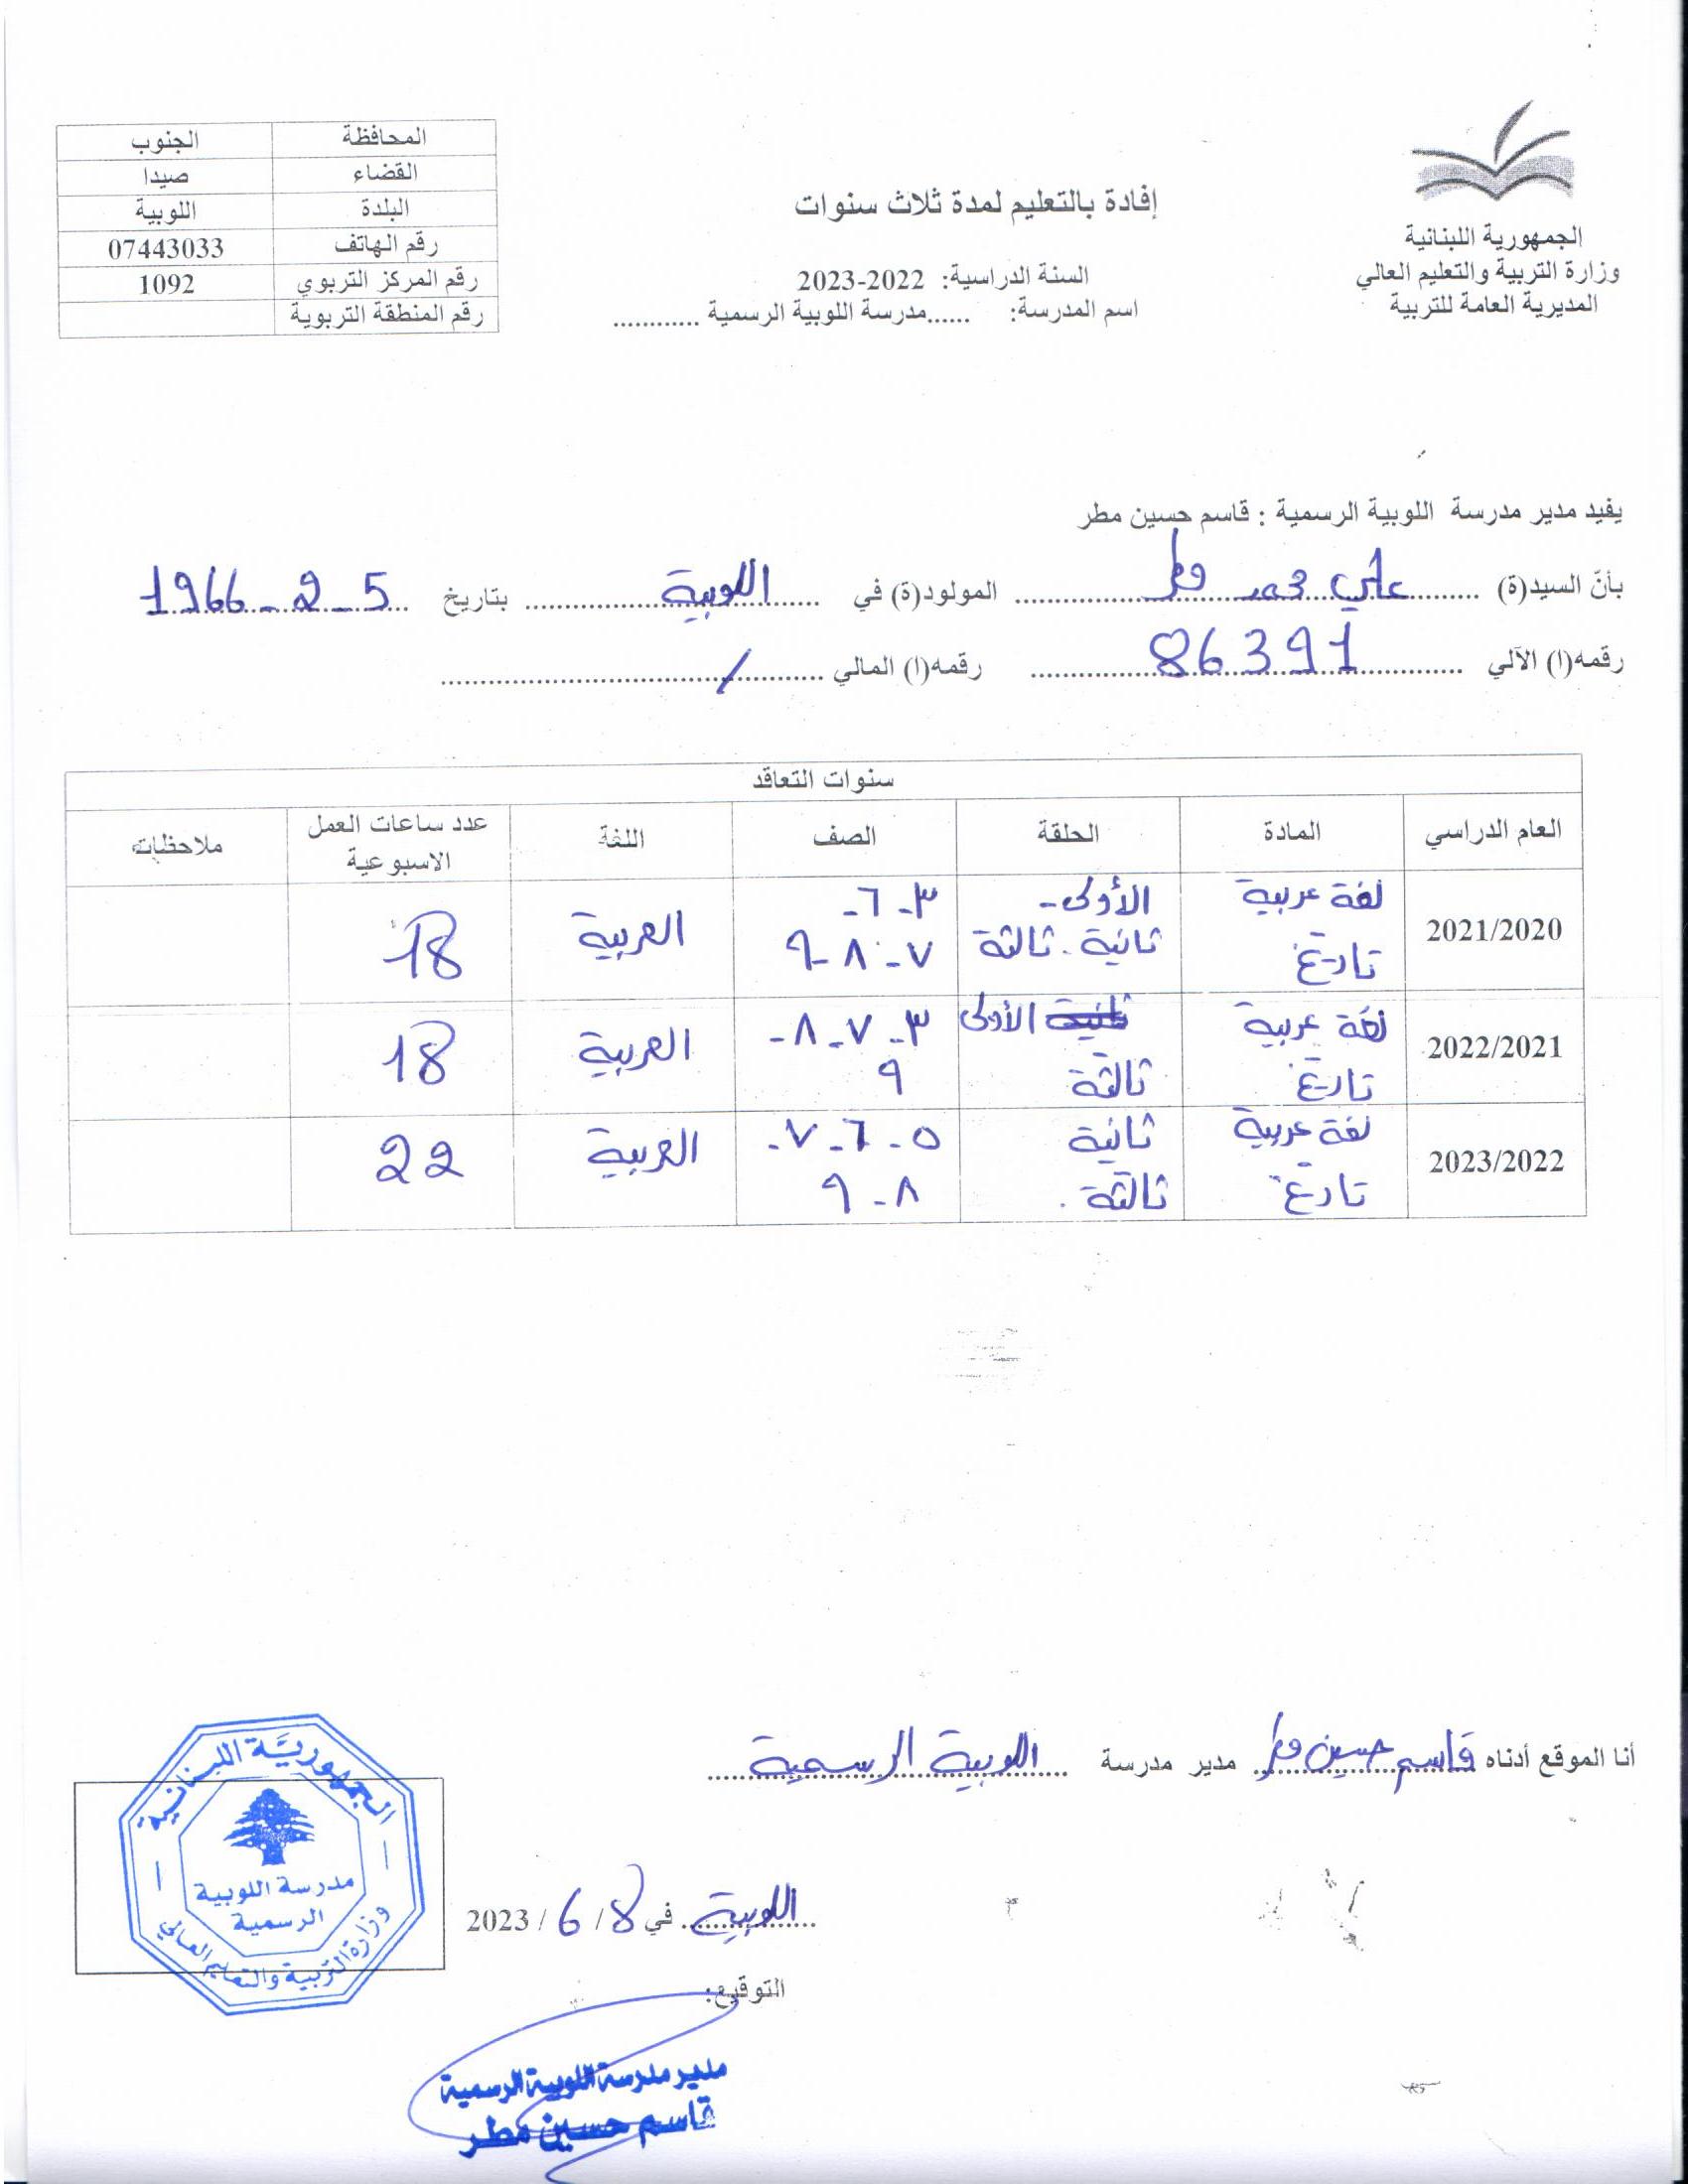 الجمهورية اللبنانية
وزارة التربية والتعليم العالي
المديرية العامة للتربية
إفادة بالتعليم لمدة ثلاث سنوات
السنة الدراسية: 2022-2023
اسم المدرسة: ......مدرسة اللوبية الرسمية ............
المحافظة الجنوب
القضاء صيدا
البلدة اللوبية
رقم الهاتف 07443033
رقم المركز التربوي 1092
رقم المنطقة التربوية
يفيد مدير مدرسة اللوبية الرسمية : قاسم حسين مطر
بأنّ السيد(ة) علي محمد مطر المولود(ة) في اللوبية بتاريخ 5-2-1966
رقمه(ا) الآلي 86391 رقمه(ا) المالي /
سنوات التعاقد
العام الدراسي المادة الحلقة الصف اللغة عدد ساعات العمل الاسبوعية ملاحظات
2021/2020 لغة عربية تاريخ الأولى - ثانية - ثالثة ٣-٦-٧-٨-٩ العربية 18
2022/2021 لغة عربية تاريخ الأولى ثالثة ٣-٧-٨-٩ العربية 18
2023/2022 لغة عربية تاريخ ثانية ثالثة ٥-٦-٧-٨-٩ العربية 22
أنا الموقع أدناه قاسم حسين مطر مدير مدرسة اللوبية الرسمية
اللوبية في 8 / 6 / 2023
التوقيع:
مدير مدرسة اللوبية الرسمية
قاسم حسين مطر
الجمهورية اللبنانية
مدرسة اللوبية
الرسمية
وزارة التربية والتعليم العالي